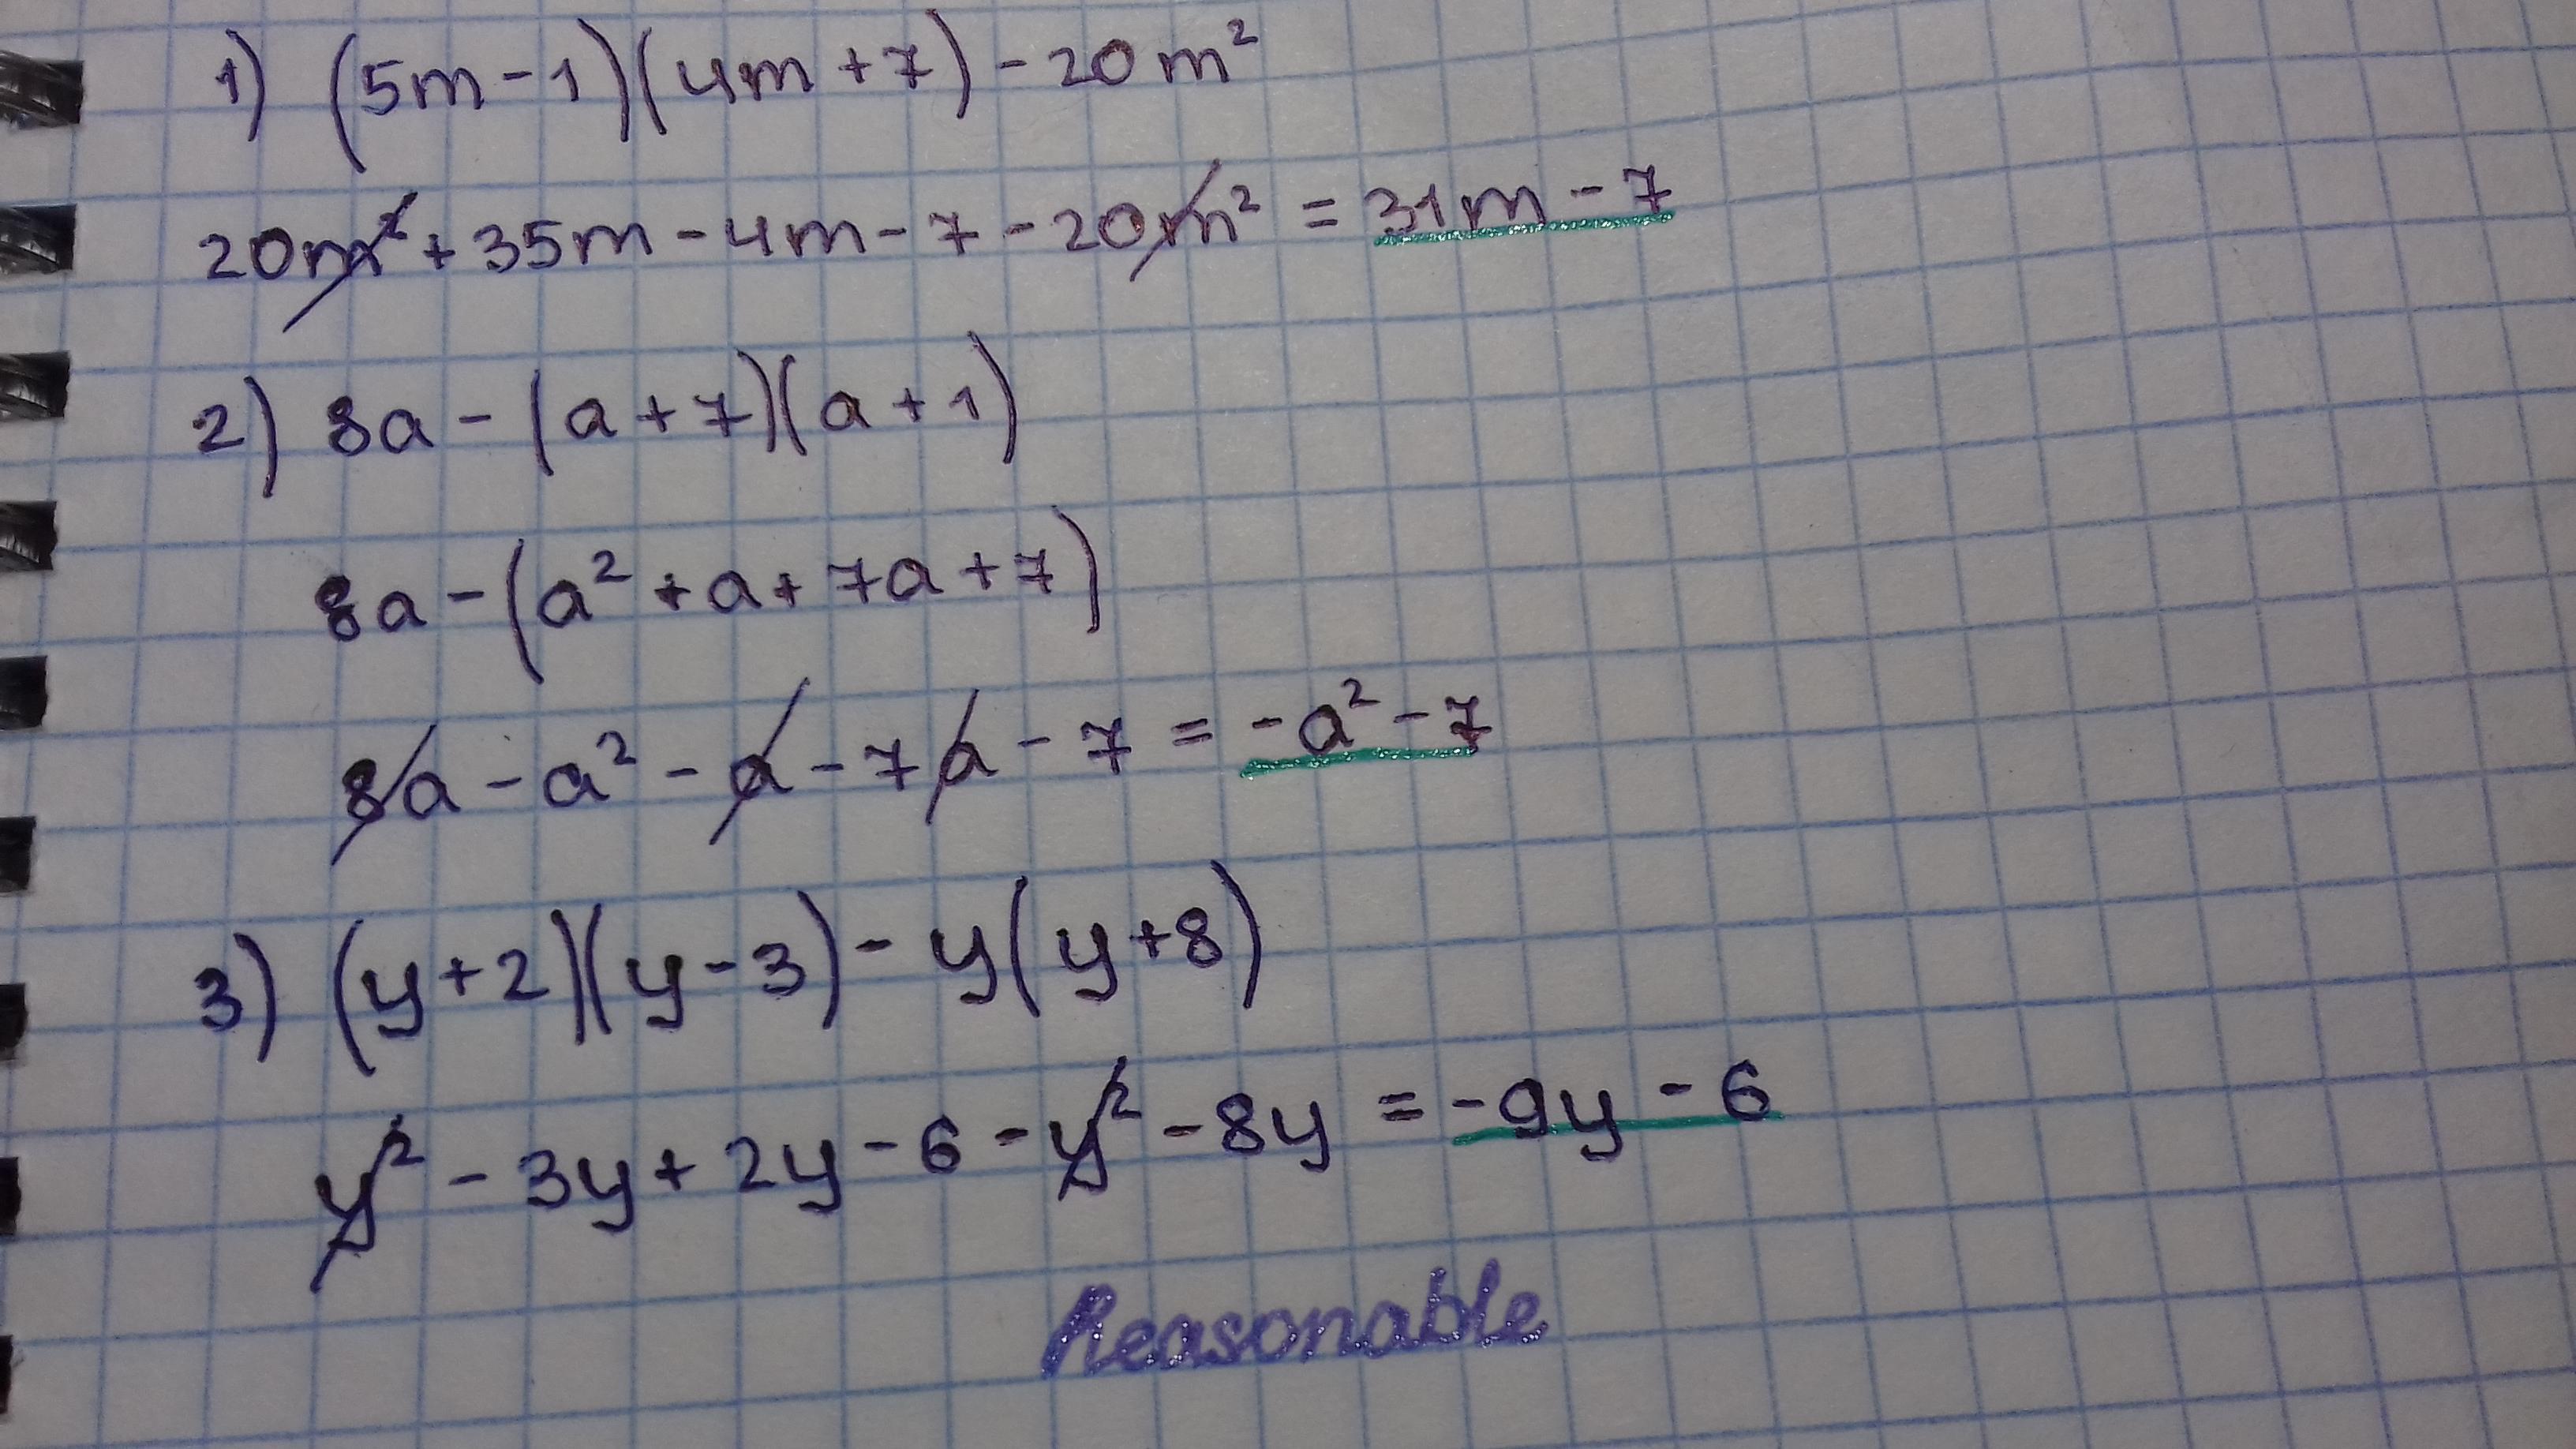 1) (5m-1)(4m+7)-20m²
20m²+35m-4m-7-20m² = 31m-7
2) 8a-(a+7)(a+1)
8a-(a²+a+7a+7)
8a-a²-a-7a-7 = -a²-7
3) (y+2)(y-3)-y(y+8)
y²-3y+2y-6-y²-8y = -9y-6
Reasonable